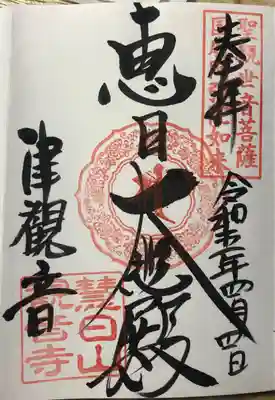 奉拝
聖観世音菩薩
国府阿弥陀如来
令和五年四月四日
恵日大悲殿
津觀音
慧日山
観音寺